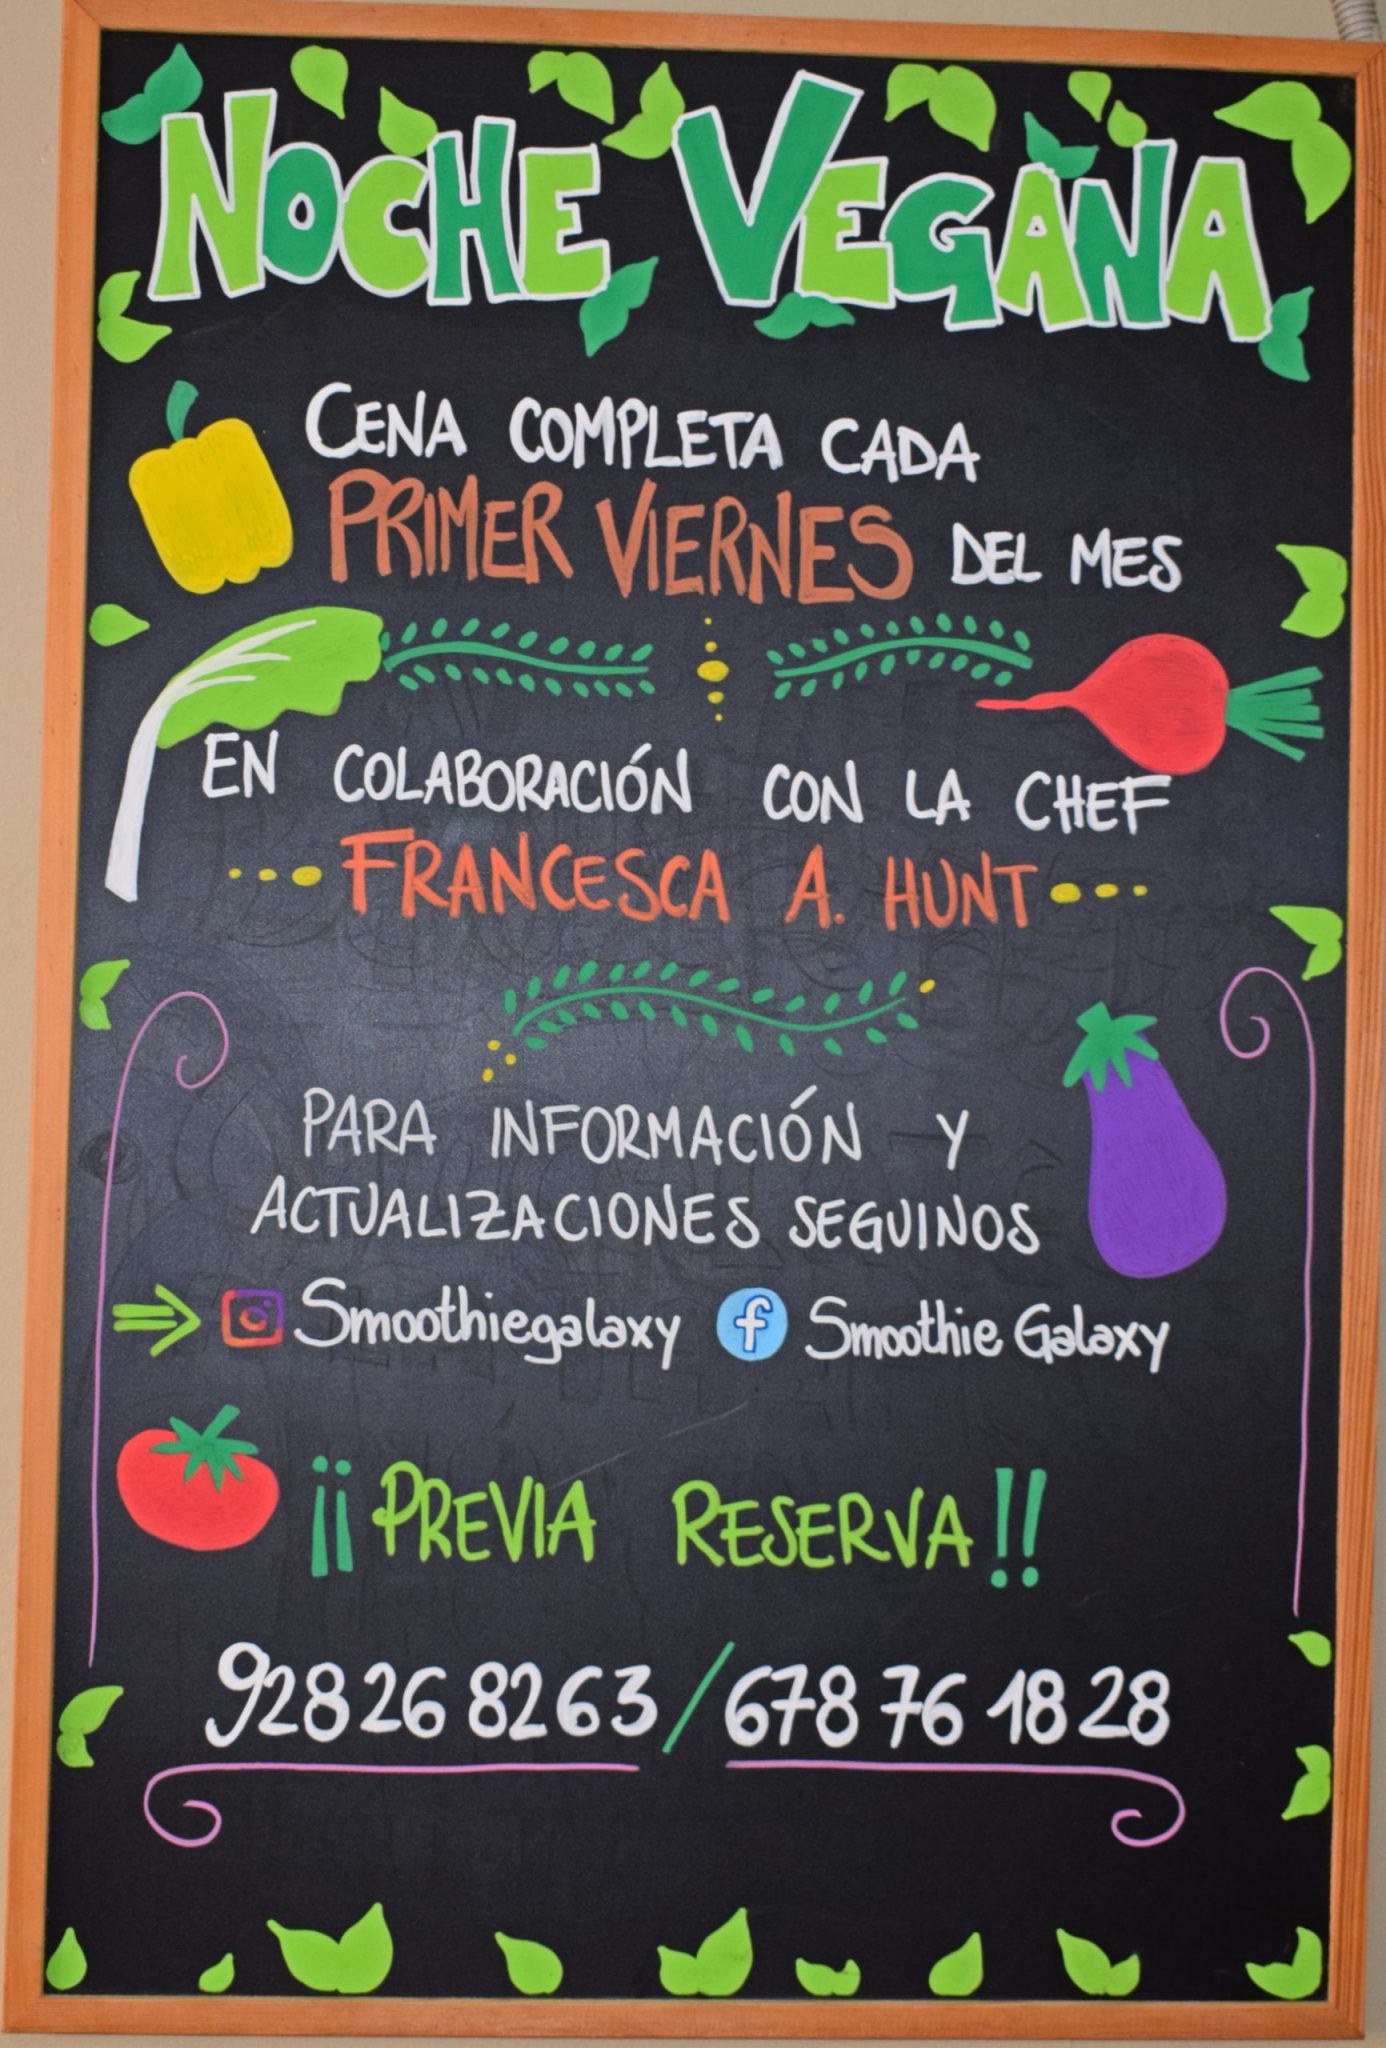 NOCHE VEGANA
CENA COMPLETA CADA
PRIMER VIERNES DEL MES
EN COLABORACIÓN CON LA CHEF
FRANCESCA A. HUNT
PARA INFORMACIÓN Y
ACTUALIZACIONES SEGUINOS
Smoothiegalaxy f Smoothie Galaxy
¡¡PREVIA RESERVA!!
928 26 82 63 / 678 76 18 28